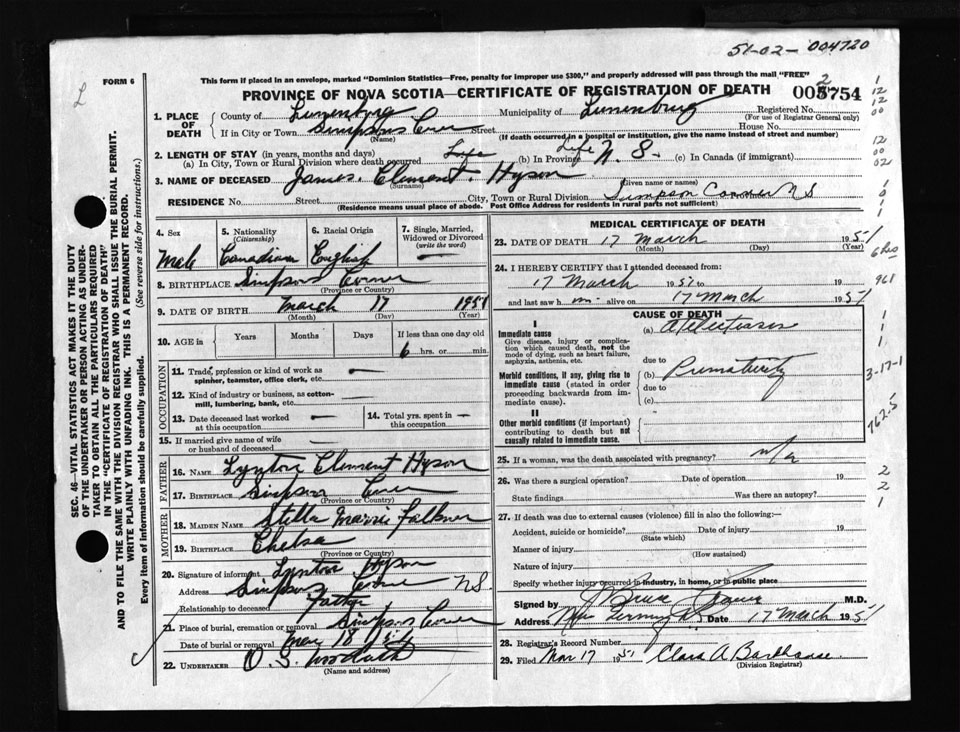 51-02-004720
FORM 6
This form if placed in an envelope, marked "Dominion Statistics—Free, penalty for improper use $300," and properly addressed will pass through the mail "FREE"
PROVINCE OF NOVA SCOTIA—CERTIFICATE OF REGISTRATION OF DEATH
1. PLACE OF DEATH
County of Lunenburg Co Municipality of Lunenburg Registered No.
(For use of Registrar General only)
If in City or Town Simpsons Corner Street House No.
(Name) (If death occurred in a hospital or institution, give the name instead of street and number)
2. LENGTH OF STAY (in years, months and days)
(a) In City, Town or Rural Division where death occurred Life (b) In Province Life N. S. (c) In Canada (if immigrant)
3. NAME OF DECEASED James. Clement. Hyson
(Surname) (Given name or names)
RESIDENCE No. Street City, Town or Rural Division Simpson Corner NS Province
(Residence means usual place of abode. Post Office Address for residents in rural parts not sufficient)
4. Sex Male
5. Nationality (Citizenship) Canadian
6. Racial Origin English
7. Single, Married, Widowed or Divorced (write the word) —
8. BIRTHPLACE Simpsons Corner
(Province or Country)
9. DATE OF BIRTH March 17 1951
(Month) (Day) (Year)
10. AGE in Years Months Days If less than one day old
6 hrs. or min.
OCCUPATION
11. Trade, profession or kind of work as spinner, teamster, office clerk, etc. —
12. Kind of industry or business, as cotton-mill, lumbering, bank, etc. —
13. Date deceased last worked at this occupation —
14. Total yrs. spent in this occupation —
15. If married give name of wife or husband of deceased —
FATHER
16. NAME Lynton Clement Hyson
17. BIRTHPLACE Simpson Corner
(Province or Country)
MOTHER
18. MAIDEN NAME Stella Marie Falkner
19. BIRTHPLACE Chelsea
(Province or Country)
20. Signature of informant Lynton Hyson
Address Simpsons Corner NS
Relationship to deceased Father
21. Place of burial, cremation or removal Simpsons Corner
Date of burial or removal Mar 18 1951
22. UNDERTAKER
(Name and address)
MEDICAL CERTIFICATE OF DEATH
23. DATE OF DEATH 17 March 1951
(Month) (Day) (Year)
24. I HEREBY CERTIFY that I attended deceased from:
17 March 1951 to 19
and last saw h im alive on 17 March 1951
CAUSE OF DEATH
I
Immediate cause
Give disease, injury or complication which caused death, not the mode of dying, such as heart failure, asphyxia, asthenia, etc.
(a) Atelectasis
due to
Morbid conditions, if any, giving rise to immediate cause (stated in order proceeding backwards from immediate cause).
(b) Prematurity
due to
(c)
II
Other morbid conditions (if important) contributing to death but not causally related to immediate cause.
25. If a woman, was the death associated with pregnancy?
26. Was there a surgical operation? Date of operation 19
State findings Was there an autopsy?
27. If death was due to external causes (violence) fill in also the following:—
Accident, suicide or homicide? Date of injury 19
(State which)
Manner of injury
(How sustained)
Nature of injury
Specify whether injury occurred in industry, in home, or in public place
Signed by M.D.
Address New Germany NS Date 17 March 1951
28. Registrar's Record Number
29. Filed Mar 17 1951 Clara A Barkhouse
(Division Registrar)
6 hrs
961
3-17-1
762.5
SEC. 46—VITAL STATISTICS ACT MAKES IT THE DUTY
OF THE UNDERTAKER OR PERSON ACTING AS UNDER-
TAKER TO OBTAIN ALL THE PARTICULARS REQUIRED
IN THE "CERTIFICATE OF REGISTRATION OF DEATH"
AND TO FILE THE SAME WITH THE DIVISION REGISTRAR WHO SHALL ISSUE THE BURIAL PERMIT.
WRITE PLAINLY WITH UNFADING INK. THIS IS A PERMANENT RECORD.
Every item of information should be carefully supplied. (See reverse side for instructions.)